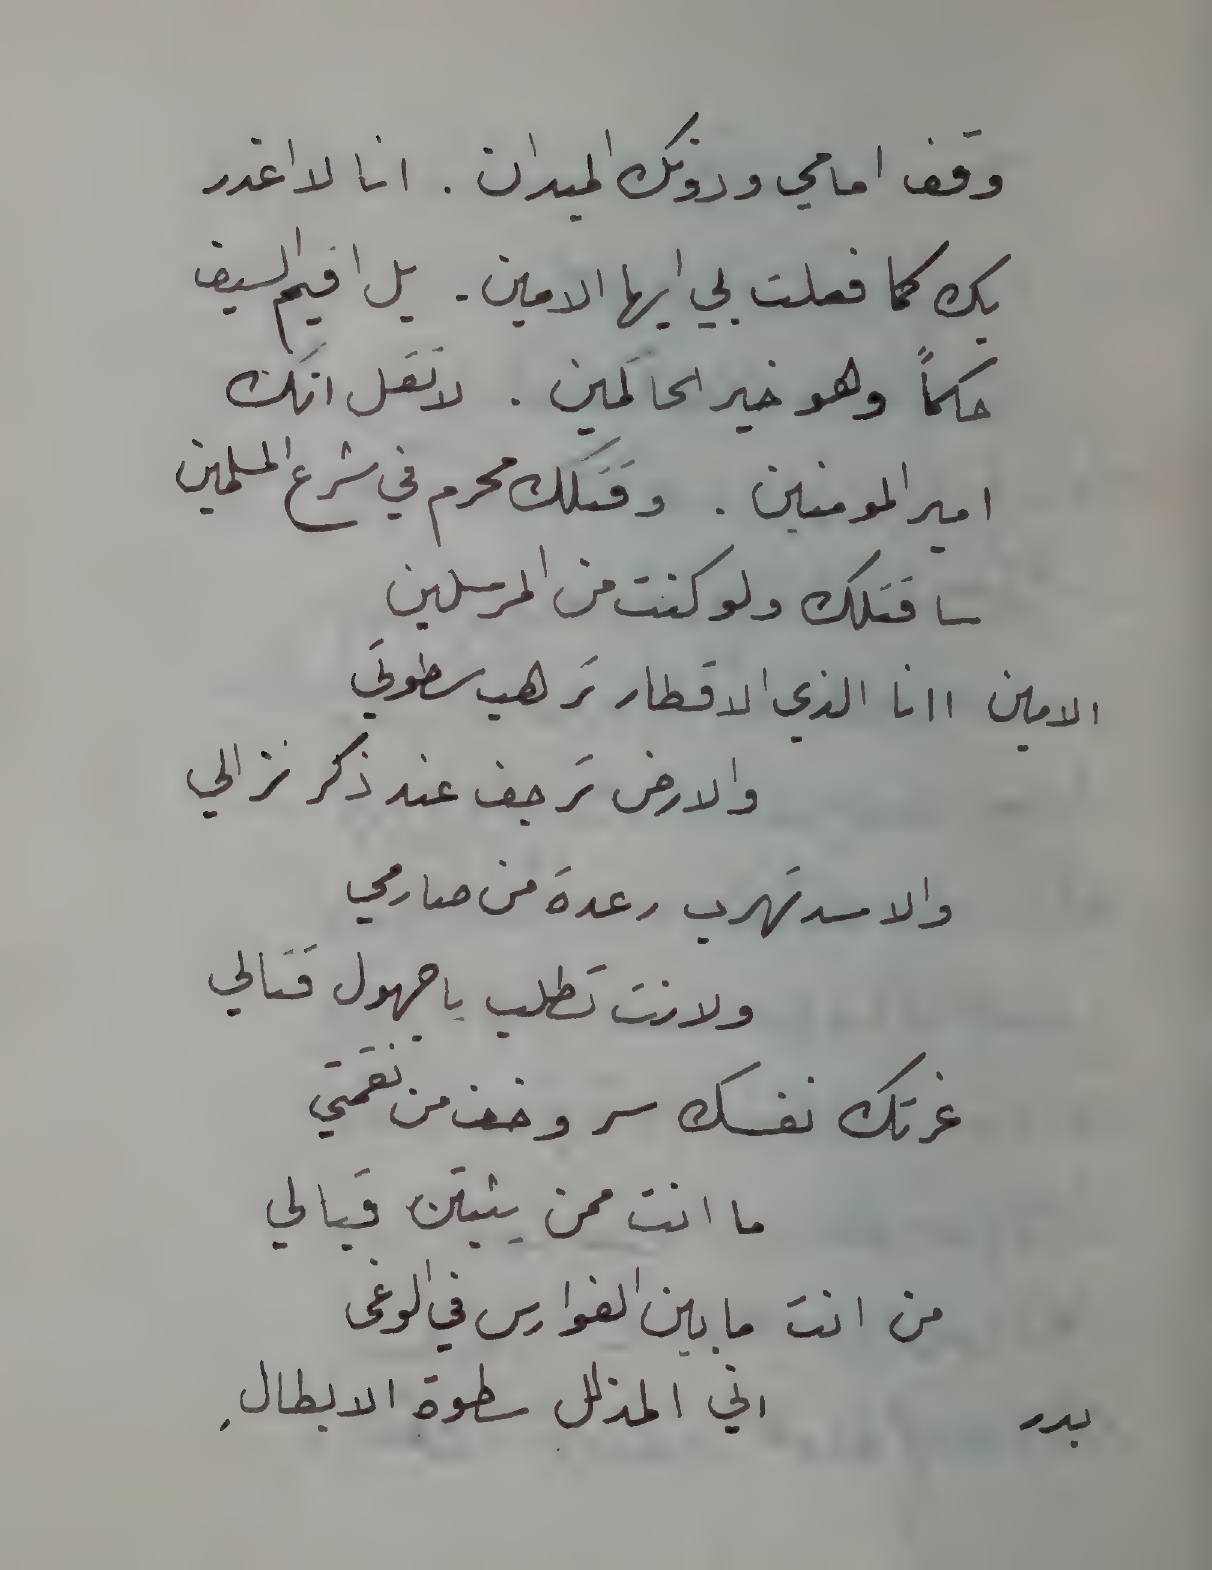 وقف امامي ودونك الميدان . انا لا اغدر
بك كما فعلت بي ايها الامين . بل اقيم السيف
حكماً وهو خير الحاكمين . لا تقل انك
امير المومنين . وقتلك محرم في شرع المسلمين
ساقتلك ولو كنت من المرسلين
الامين اانا الذي الاقطار ترهب سطوتي
والارض ترجف عند ذكر نزالي
والاسد تهرب رعدة من صارمي
ولانت تطلب يا جهول قتالي
غرتك نفسك سر وخف من نقمتي
ما انت ممن يثبتن قبالي
من انت ما بين الفوارس في الوغى
اني المذلل سطوة الابطال
بدر